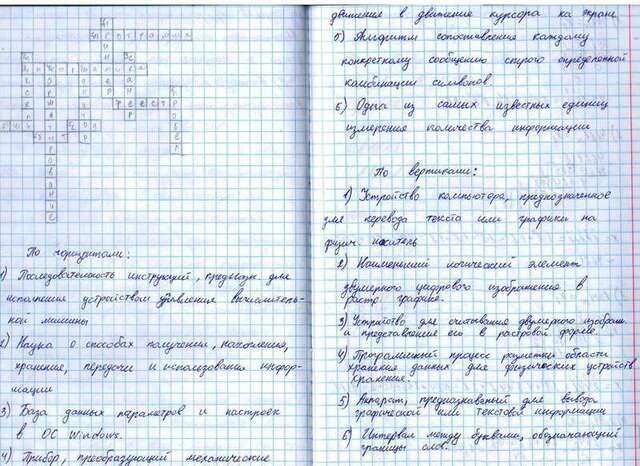 По горизонтали:
1) Последовательность инструкций, предназн. для
исполнения устройством управления вычислитель-
ной машины
2) Наука о способах получения, накопления,
хранения, передачи и использования инфор-
мации
3) База данных параметров и настроек
в ОС Windows.
4) Прибор, преобразующий механические
движения в движение курсора на экране
5) Алгоритм сопоставления каждому
конкретному сообщению строго определенной
комбинации символов.
6) Одна из самых известных единиц
измерения количества информации
По вертикали:
1) Устройство компьютера, предназначенное
для перевода текста или графики на
физич. носитель
2) Наименьший логический элемент
двумерного цифрового изображения в
растр. графике.
3) Устройство для считывания двумерного изображ.
и представления его в растровой форме.
4) Программный процесс разметки области
хранения данных для физических устройств
хранения.
5) Аппарат, предназнаванный для вывода
графической или текстовой информации
6) Интервал между буквами, обозначающий
границы слов.